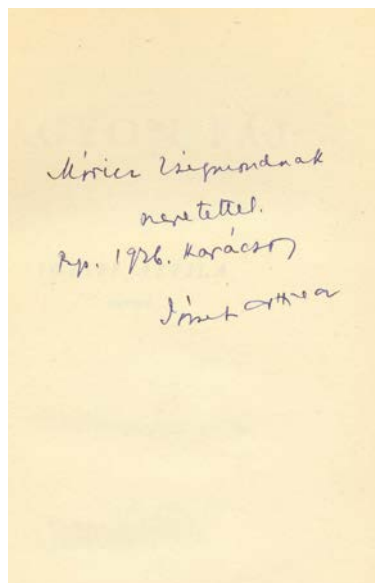 Móricz Zsigmondnak
szeretettel.
Bp. 1936. Karácsony
József Attila